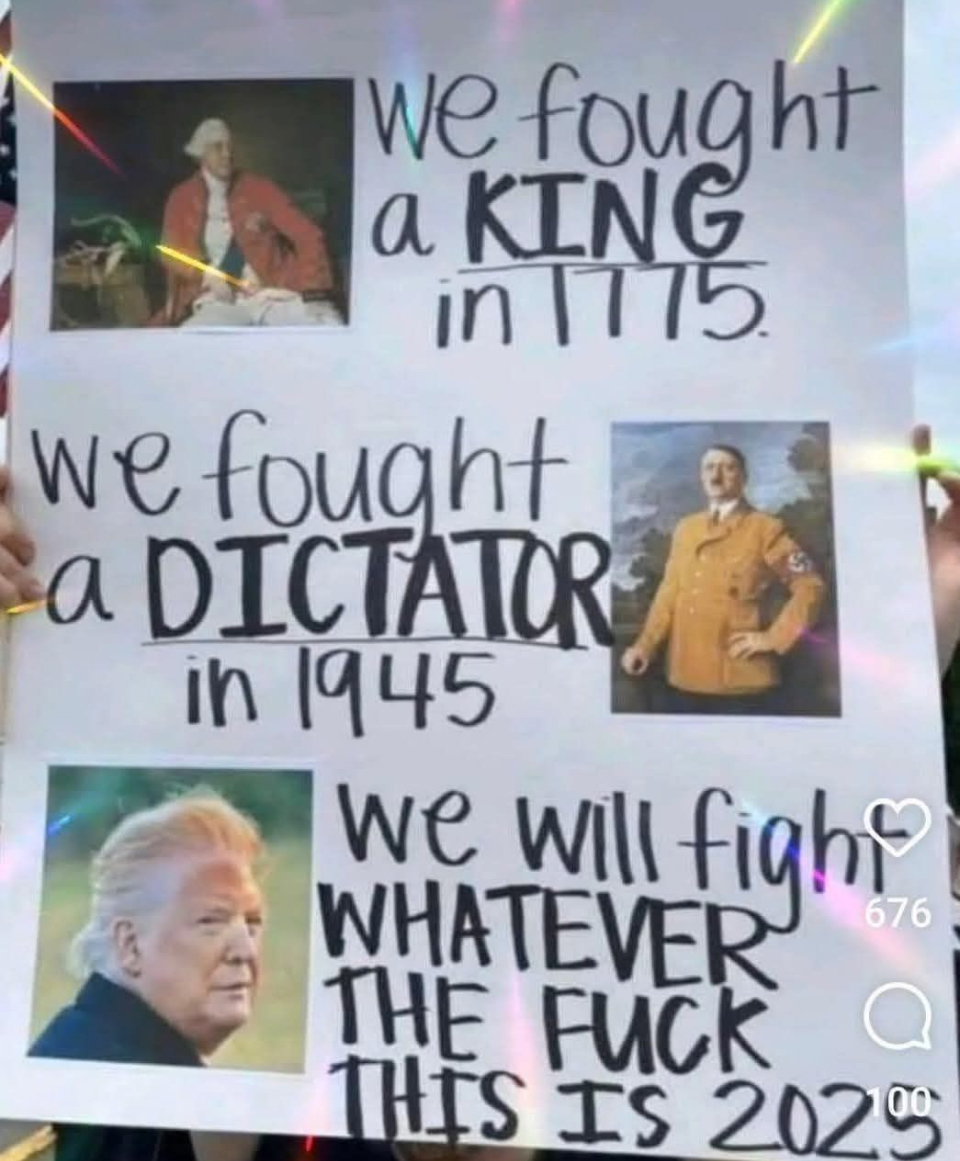 We fought
a KING
in 1775.
We fought
a DICTATOR
in 1945
We will fight
WHATEVER
THE FUCK
THIS IS 2025
676
100